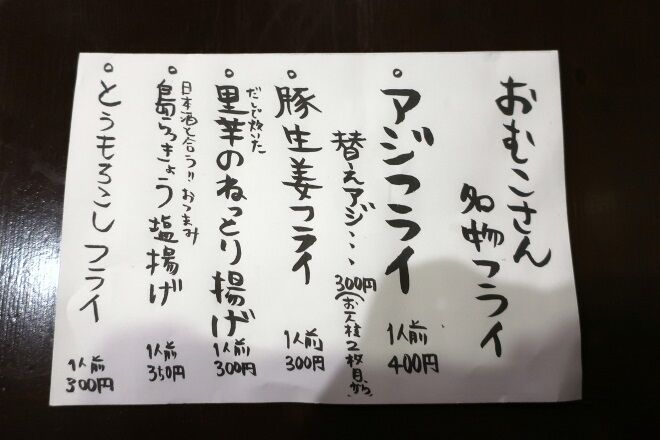 おむこさん
名物フライ
○ アジフライ
1人前
400円
替えアジ・・・300円
(お一人様2枚目から)
○ 豚生姜フライ
1人前
300円
だしで炊いた
○ 里芋のねっとり揚げ
1人前
300円
日本酒と合う!!おつまみ
○ 島らっきょう塩揚げ
1人前
350円
○ とうもろこしフライ
1人前
300円